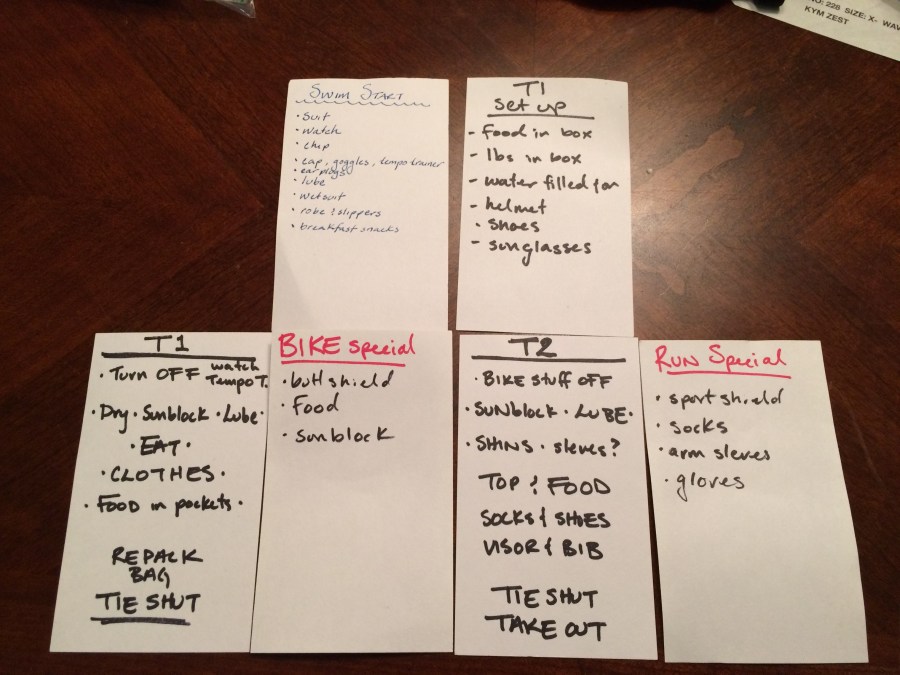 NO: 228 SIZE: X- WAV
KYM ZEST
SWIM START
• Suit
• watch
• chip
• cap, goggles, tempo trainer
• earplugs
• lube
• wetsuit
• robe & slippers
• breakfast snacks
T1
set up
- food in box
- lbs in box
- water filled for
- helmet
• shoes
- sunglasses
T1
• Turn OFF watch
Tempo T.
• Dry • Sunblock • Lube •
• EAT •
• CLOTHES •
• FOOD in pockets •
REPACK
BAG
TIE SHUT
BIKE special
• butt shield
• Food
• sunblock
T2
• BIKE stuff OFF
• SUNblock • LUBE •
• SHINS • sleves?
TOP & FOOD
SOCKS & SHOES
VISOR & BIB
TIE SHUT
TAKE OUT
RUN Special
• sport shield
• socks
• arm sleves
• gloves